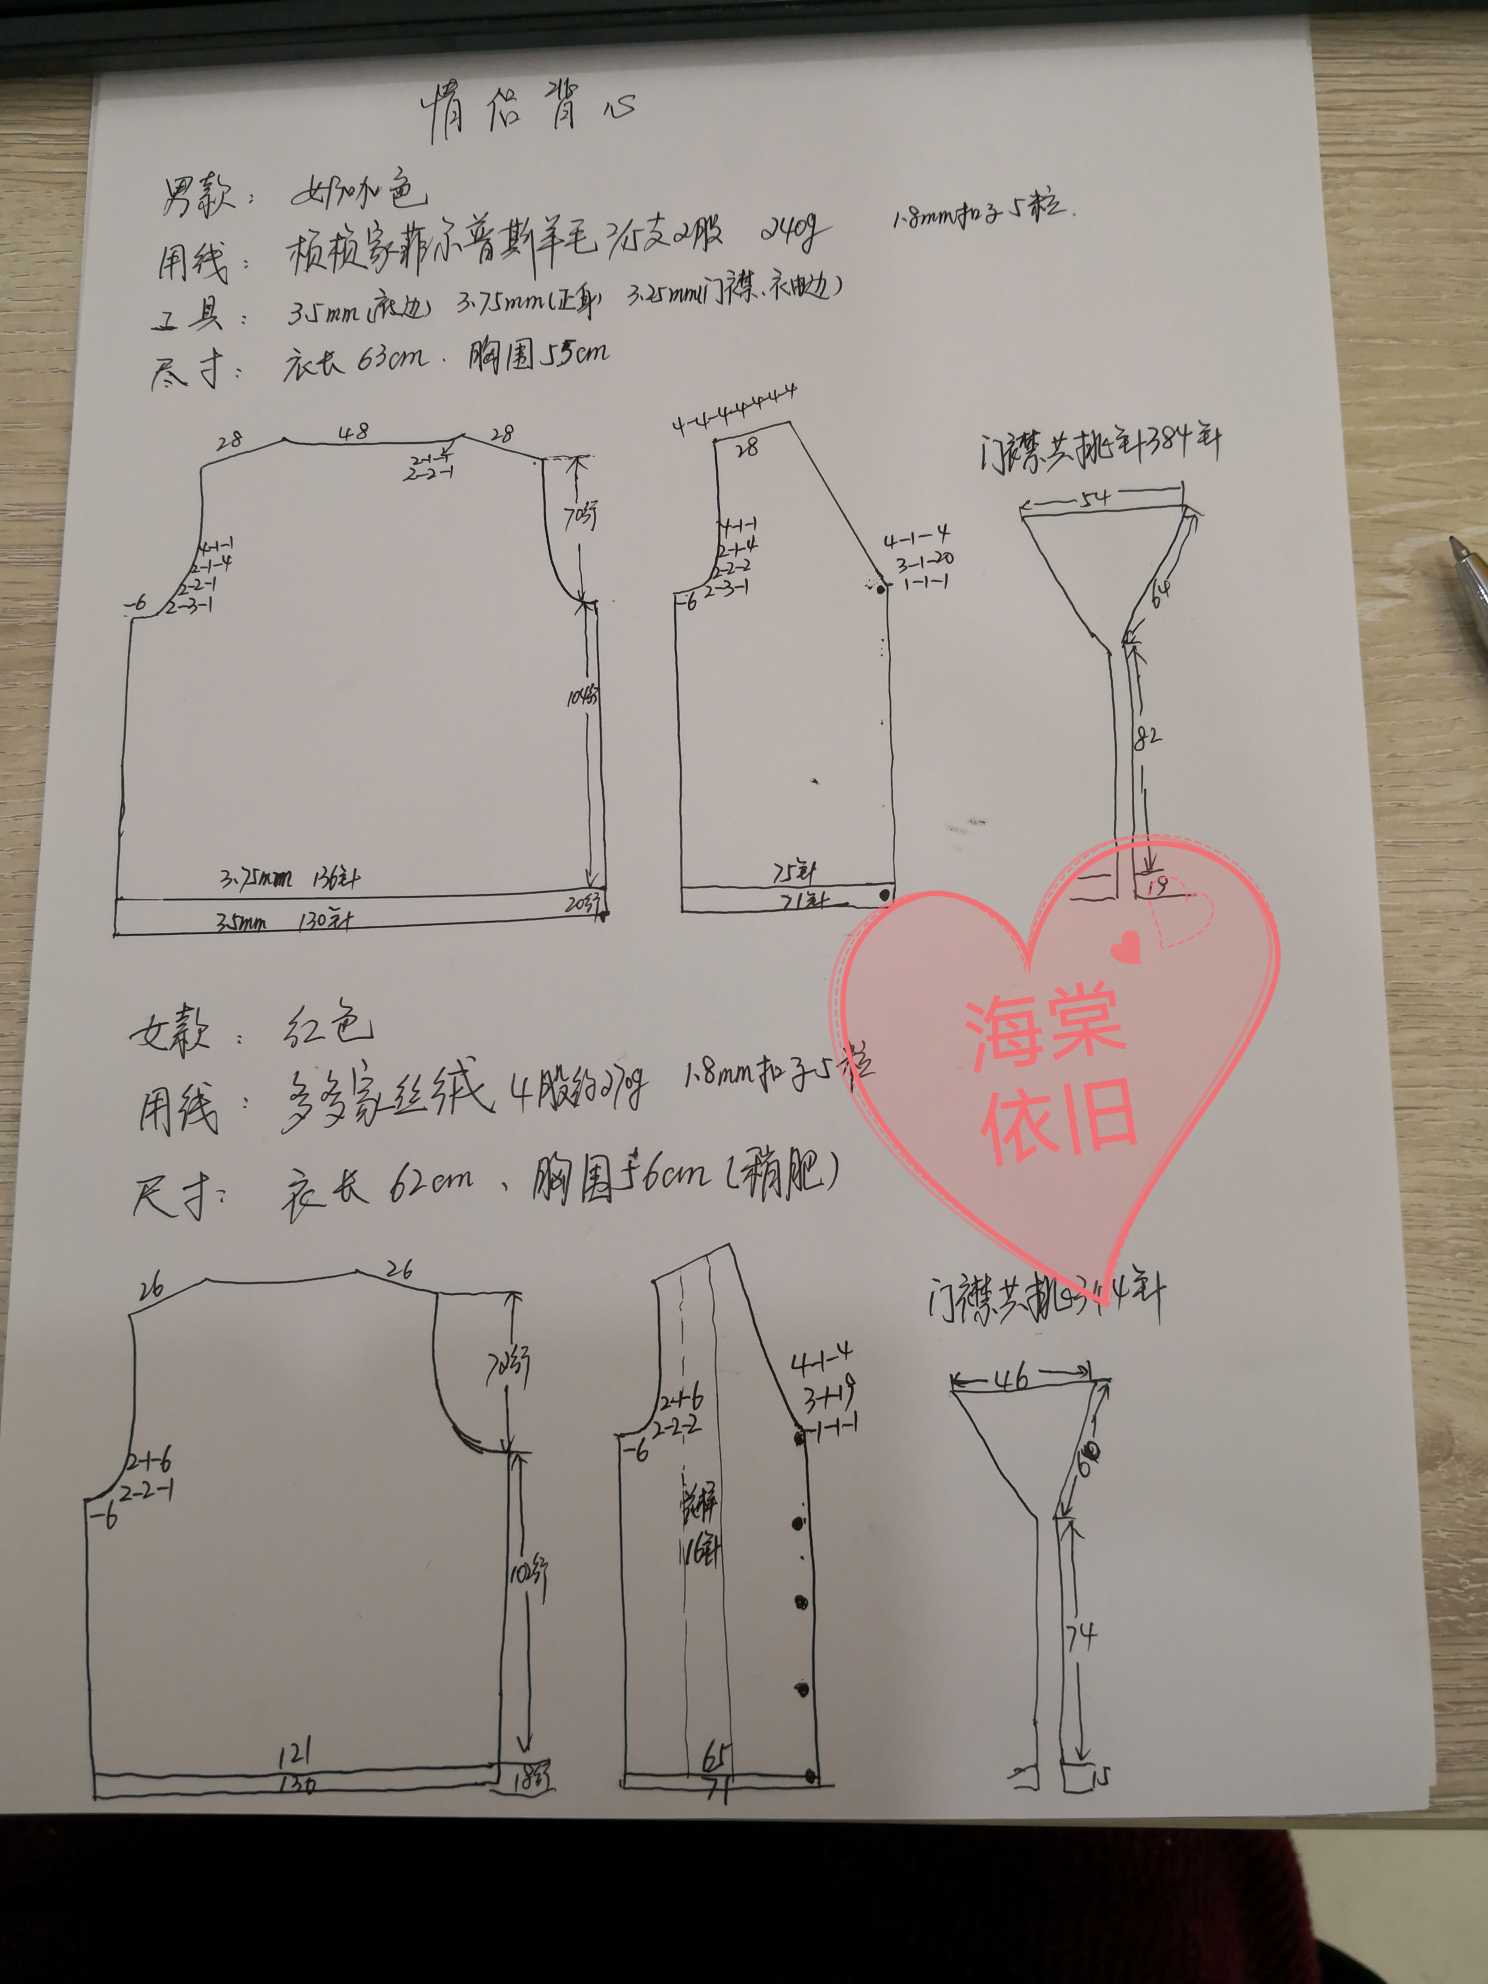 情侣背心
男款：
用线：桢桢家菲尔普斯羊毛2/5支2股 240g 1.8mm扣子5粒.
工具：3.5mm(底边) 3.75mm(正身) 3.25mm(门襟、衣边)
尺寸：衣长63cm. 胸围55cm
28 48 28
2-1-4
2-2-1
70行
4-1-1
2-1-4
2-2-1
-6 2-3-1
104行
3.75mm 136针
3.5mm 130针
20行
4-4-4-4-4-4-4
28
4-1-1
2-1-4
2-2-2
-6 2-3-1
4-1-4
3-1-20
1-1-1
75针
71针
门襟共挑针384针
54
64
82
19
女款：红色
用线：多多家丝绒 4股约270g 1.8mm扣子5粒
尺寸：衣长62cm、胸围56cm(稍肥)
26 26
70行
2-1-6
-6 2-2-1
102行
121
130
18行
2-1-6
-6 2-2-2
4-1-4
3-1-19
1-1-1
16针
65
71
门襟共挑
46
74
15
海棠
依旧